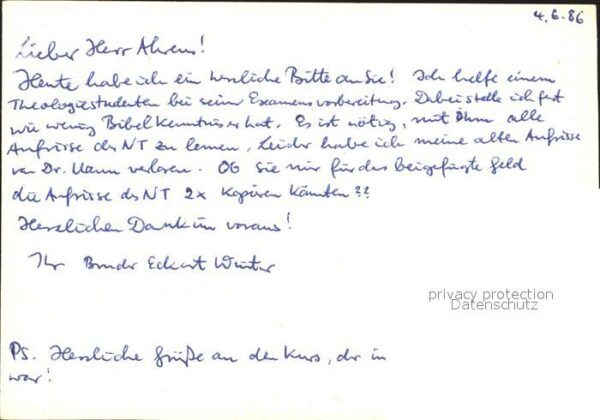 4.6.86
Lieber Herr Ahrens!
Heute habe ich ein herzliche Bitte an Sie! Ich helfe einem
Theologiestudenten bei seiner Examensvorbereitung. Dabei stelle ich fest
wie wenig Bibelkenntnis er hat. Es ist nötig, mit Ihm alle
Aufrisse des NT zu lernen, Leider habe ich meine alten Aufrisse
von Dr. verloren. Ob Sie mir für das beigefügte Geld
die Aufrisse des NT 2x kopieren könnten??
Herzlichen Dank im voraus!
Ihr Bruder Eckart Winter
privacy protection
Datenschutz
PS. Herzliche Grüße an den Kurs, der in
war!